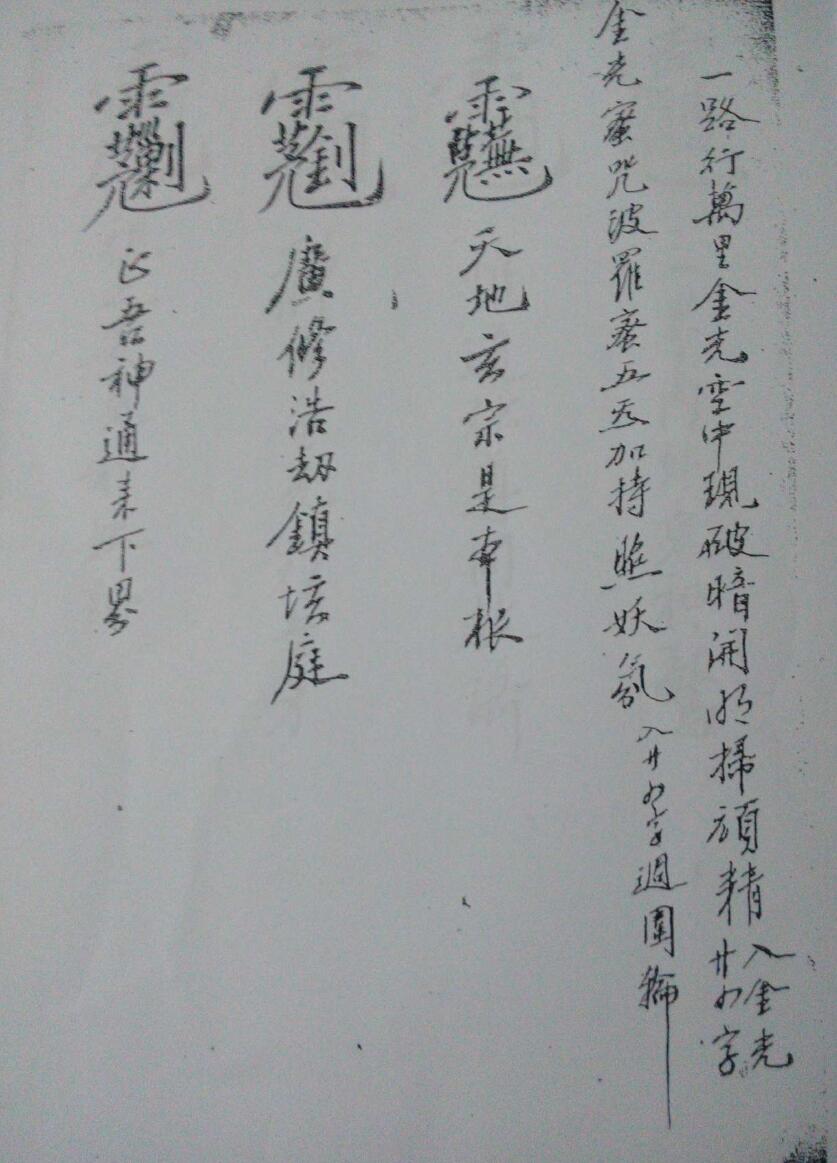 一路行萬里金光空中現破暗開明掃頑精入金光
廿四字
金光蜜咒波羅蜜五炁加持照妖氛入廿四字週圍輪
天地玄宗是本根
廣修浩劫鎮垓庭
正吾神通來下界